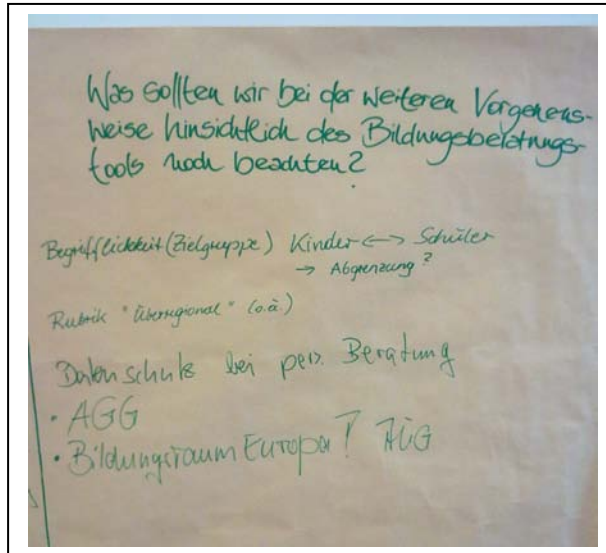 Was sollten wir bei der weiteren Vorgehens-
weise hinsichtlich des Bildungsberatungs-
tools noch beachten?
Begrifflichkeit (Zielgruppe) Kinder ↔ Schüler
→ Abgrenzung?
Rubrik "überregional" (o.ä.)
Datenschutz bei pers. Beratung
• AGG
• Bildungsraum Europa? AÜG